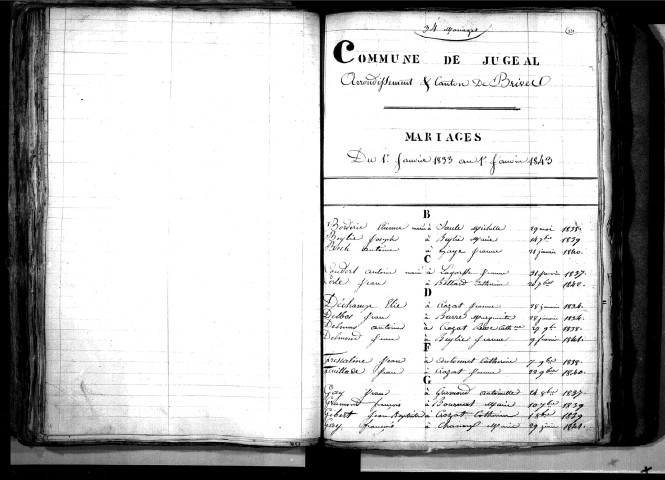 34 Mariages
COMMUNE DE JUGEAL
Arrondissement & Canton De Brive
MARIAGES
Du 1er Janvier 1833 au 1er Janvier 1843
B
Borderie Etienne marié à Saule Michelle 29 mai 1838
Beylie Joseph à Beylie Marie 14 7bre 1839
Bosch antoine à Gaye Jeanne 21 janvier 1840
C
Coudert antoine marié à Lagorsse Jeanne 31 janvier 1837
Coste Jean à Catherine 1840
D
Dechamp Elie à Crozat Jeanne 28 janvier 1834
Delbos Jean à Barre Marguerite 28 janvier 1834
Delmas antoine à Crozat 29 9bre 1838
Delmond Jean à Beylie Jeanne 9 février 1841
F
Jean à Catherine 7 9bre 1838
Feuillade Jean à Crozat Jeanne 22 9bre 1840
G
Gay Jean à Germond antoinette 14 8bre 1837
Germont françois à Bournat Marie 10 7bre 1839
Gibert Jean Baptiste à Crozat Catherine 1 8bre 1839
Gay françois à Marie 29 juin 1841